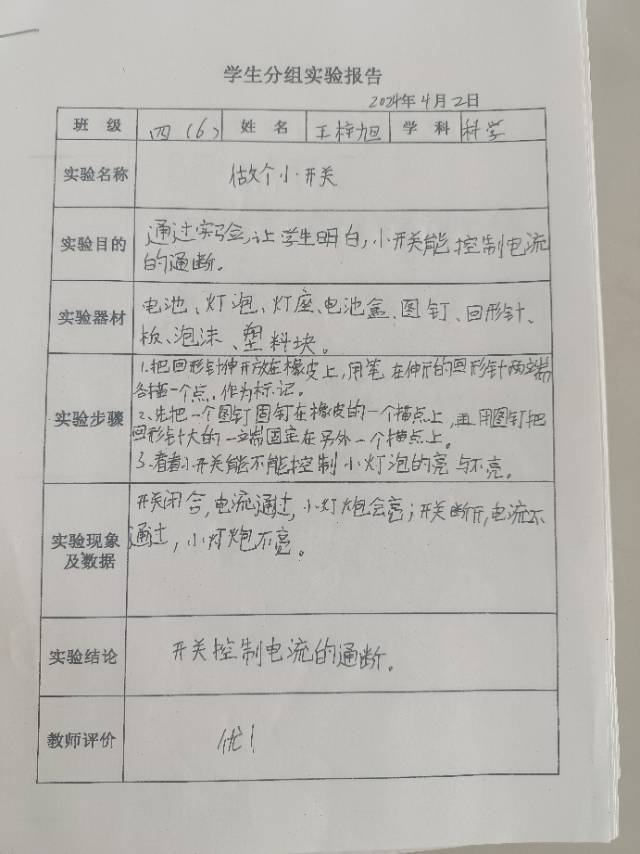 学生分组实验报告
2024年4月2日
班 级 四（6） 姓 名 王梓旭 学 科 科学
实验名称 做个小开关
实验目的 通过实验,让学生明白,小开关能控制电流
的通断。
实验器材 电池、灯泡、灯座、电池盒、图钉、回形针、
板、泡沫、塑料块。
实验步骤 1.把回形针伸开放在橡皮上,用笔在伸开的回形针两端
各描一个点,作为标记。
2.先把一个图钉固钉在橡皮的一个描点上,再用图钉把
回形针大的一端固定在另外一个描点上。
3.看看小开关能不能控制小灯泡的亮与不亮。
实验现象及数据 开关闭合,电流通过,小灯炮会亮;开关断开,电流不
通过,小灯炮不亮。
实验结论 开关控制电流的通断。
教师评价 优!